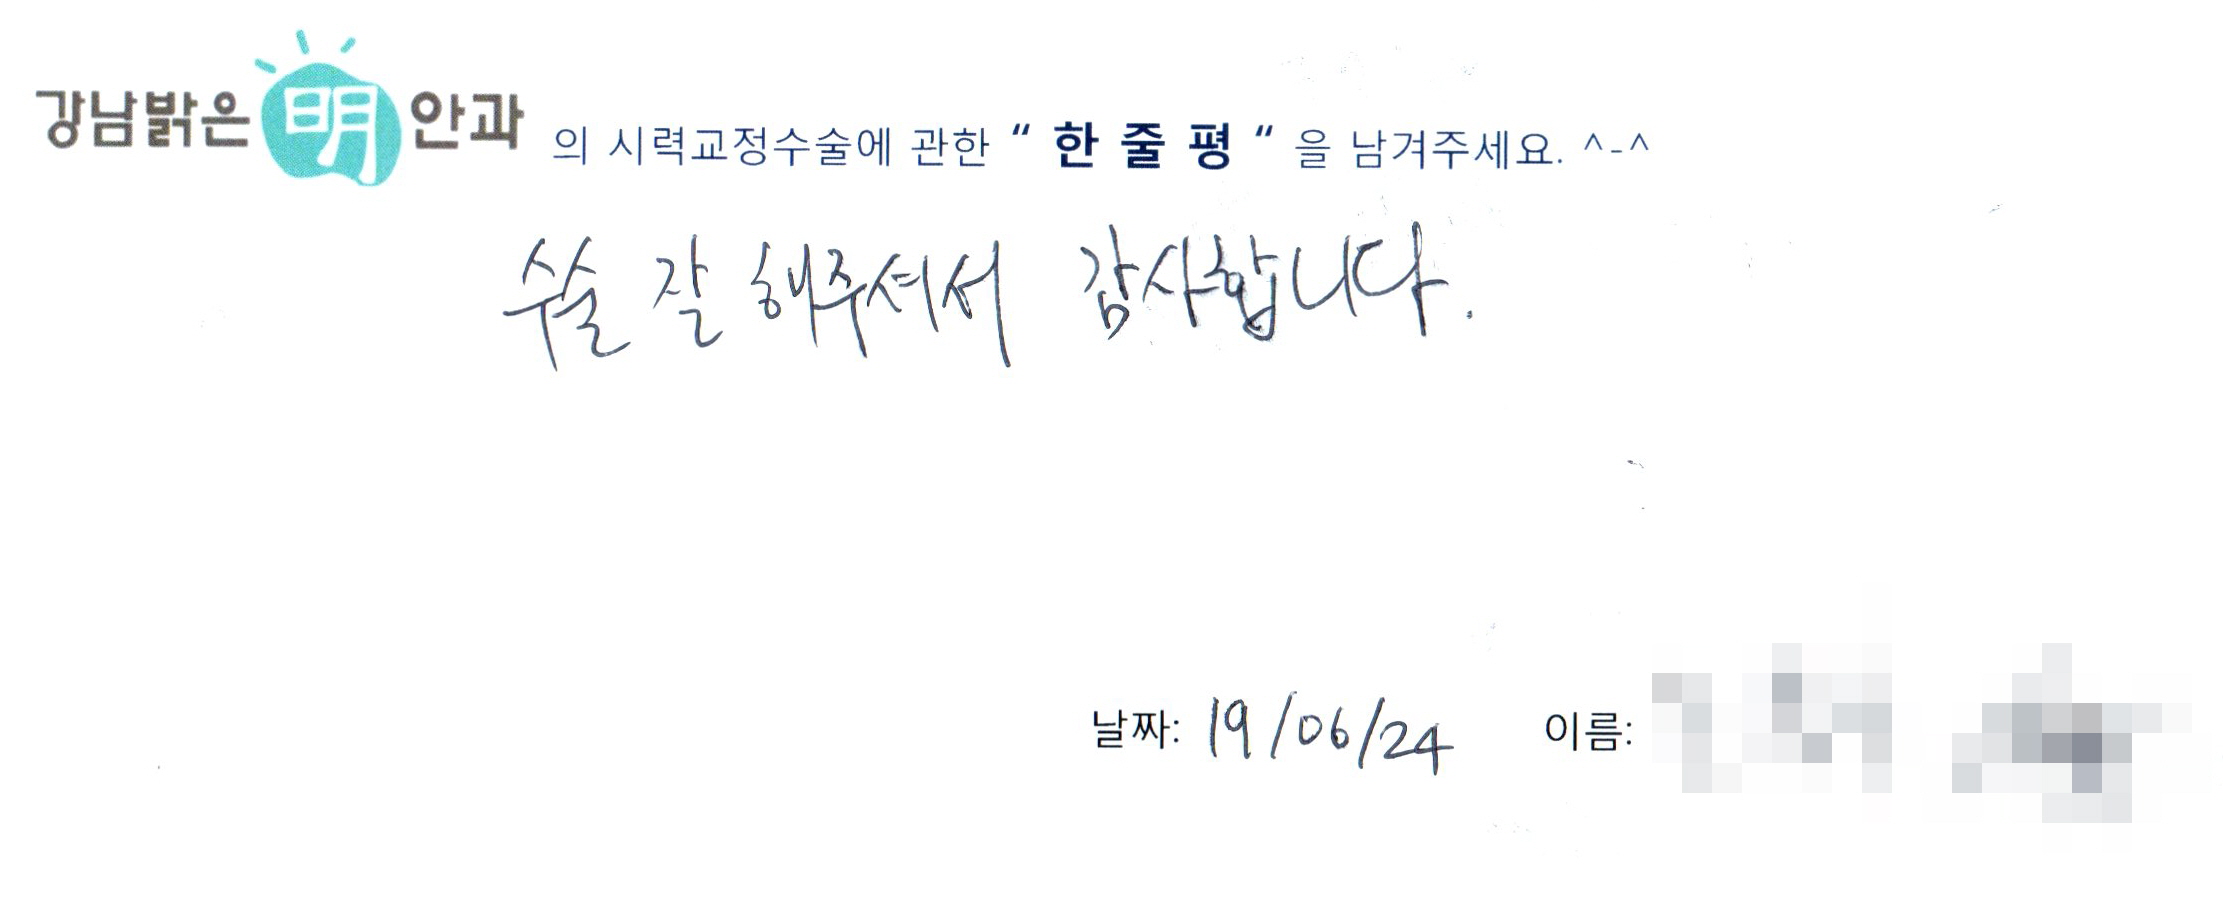 강남밝은 明 안과 의 시력교정수술에 관한 “ 한 줄 평 “ 을 남겨주세요. ^-^
수술 잘 해주셔서 감사합니다.
날짜: 19/06/24 이름: